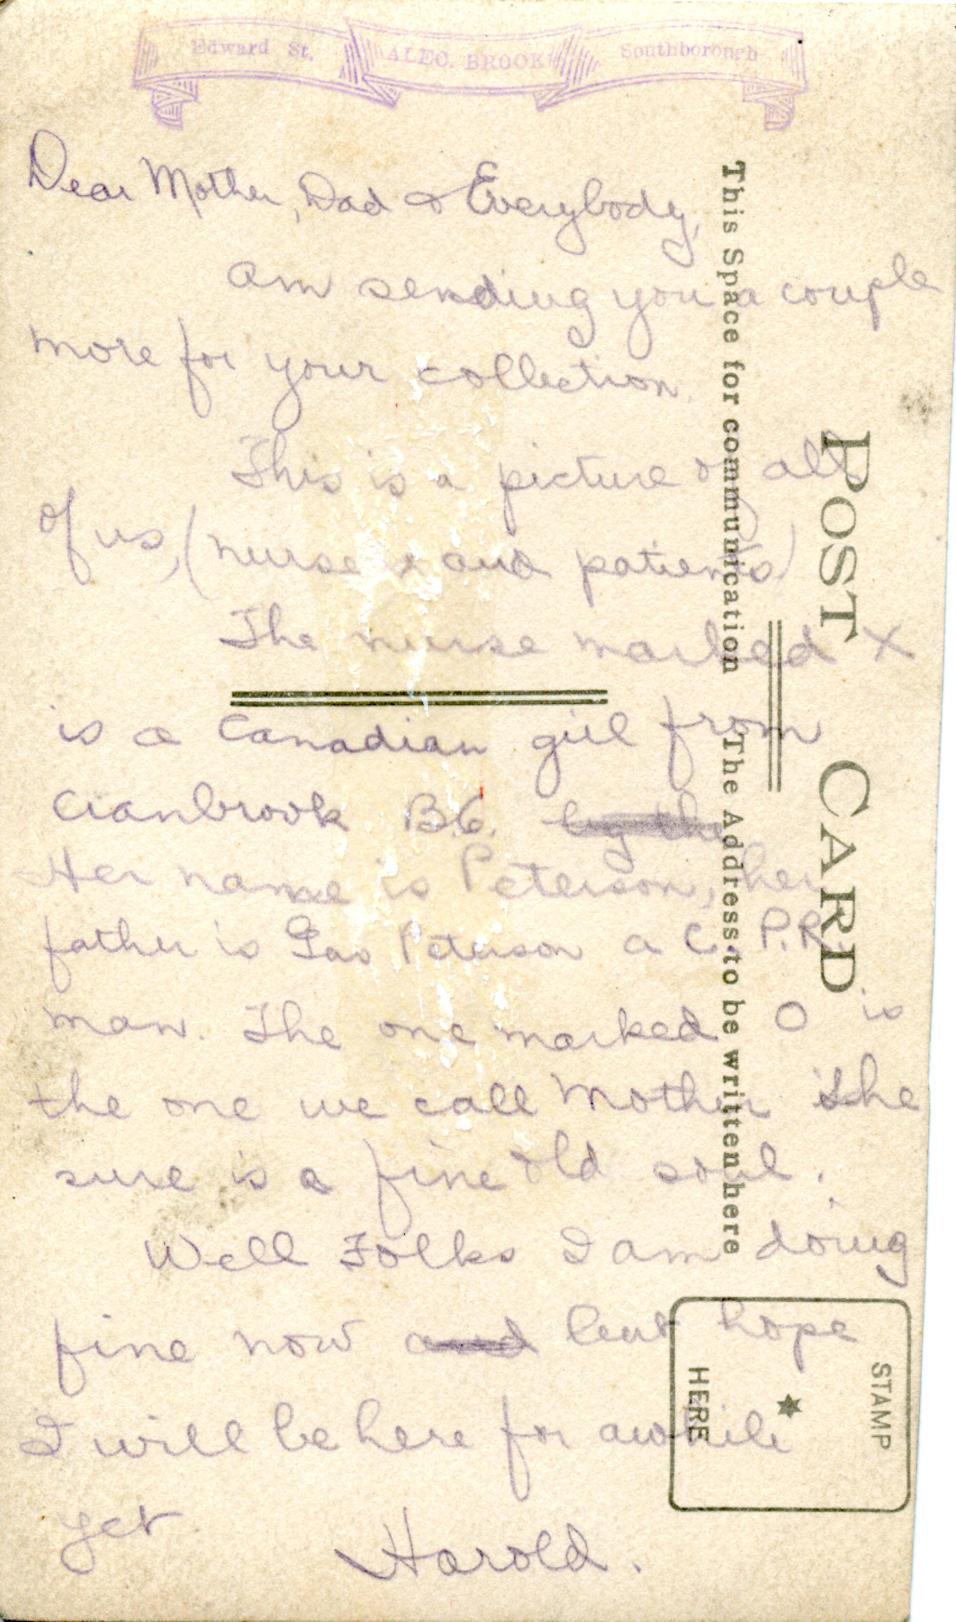 Edward St. ALEC. BROOK Southborough
Dear Mother, Dad & Everybody,
am sending you a couple
more for your collection.
This is a picture of all
of us, (nurses and patients)
The nurse marked X
is a Canadian girl from
Cranbrook B.C. by the
Her name is Peterson, her
father is Gas Peterson a C.P.R.
man. The one marked O is
the one we call Mother She
sure is a fine old soul.
Well Folks I am doing
fine now and but hope
I will be here for awhile
yet
Harold.
POST CARD
This Space for communication The Address to be written here
STAMP
HERE